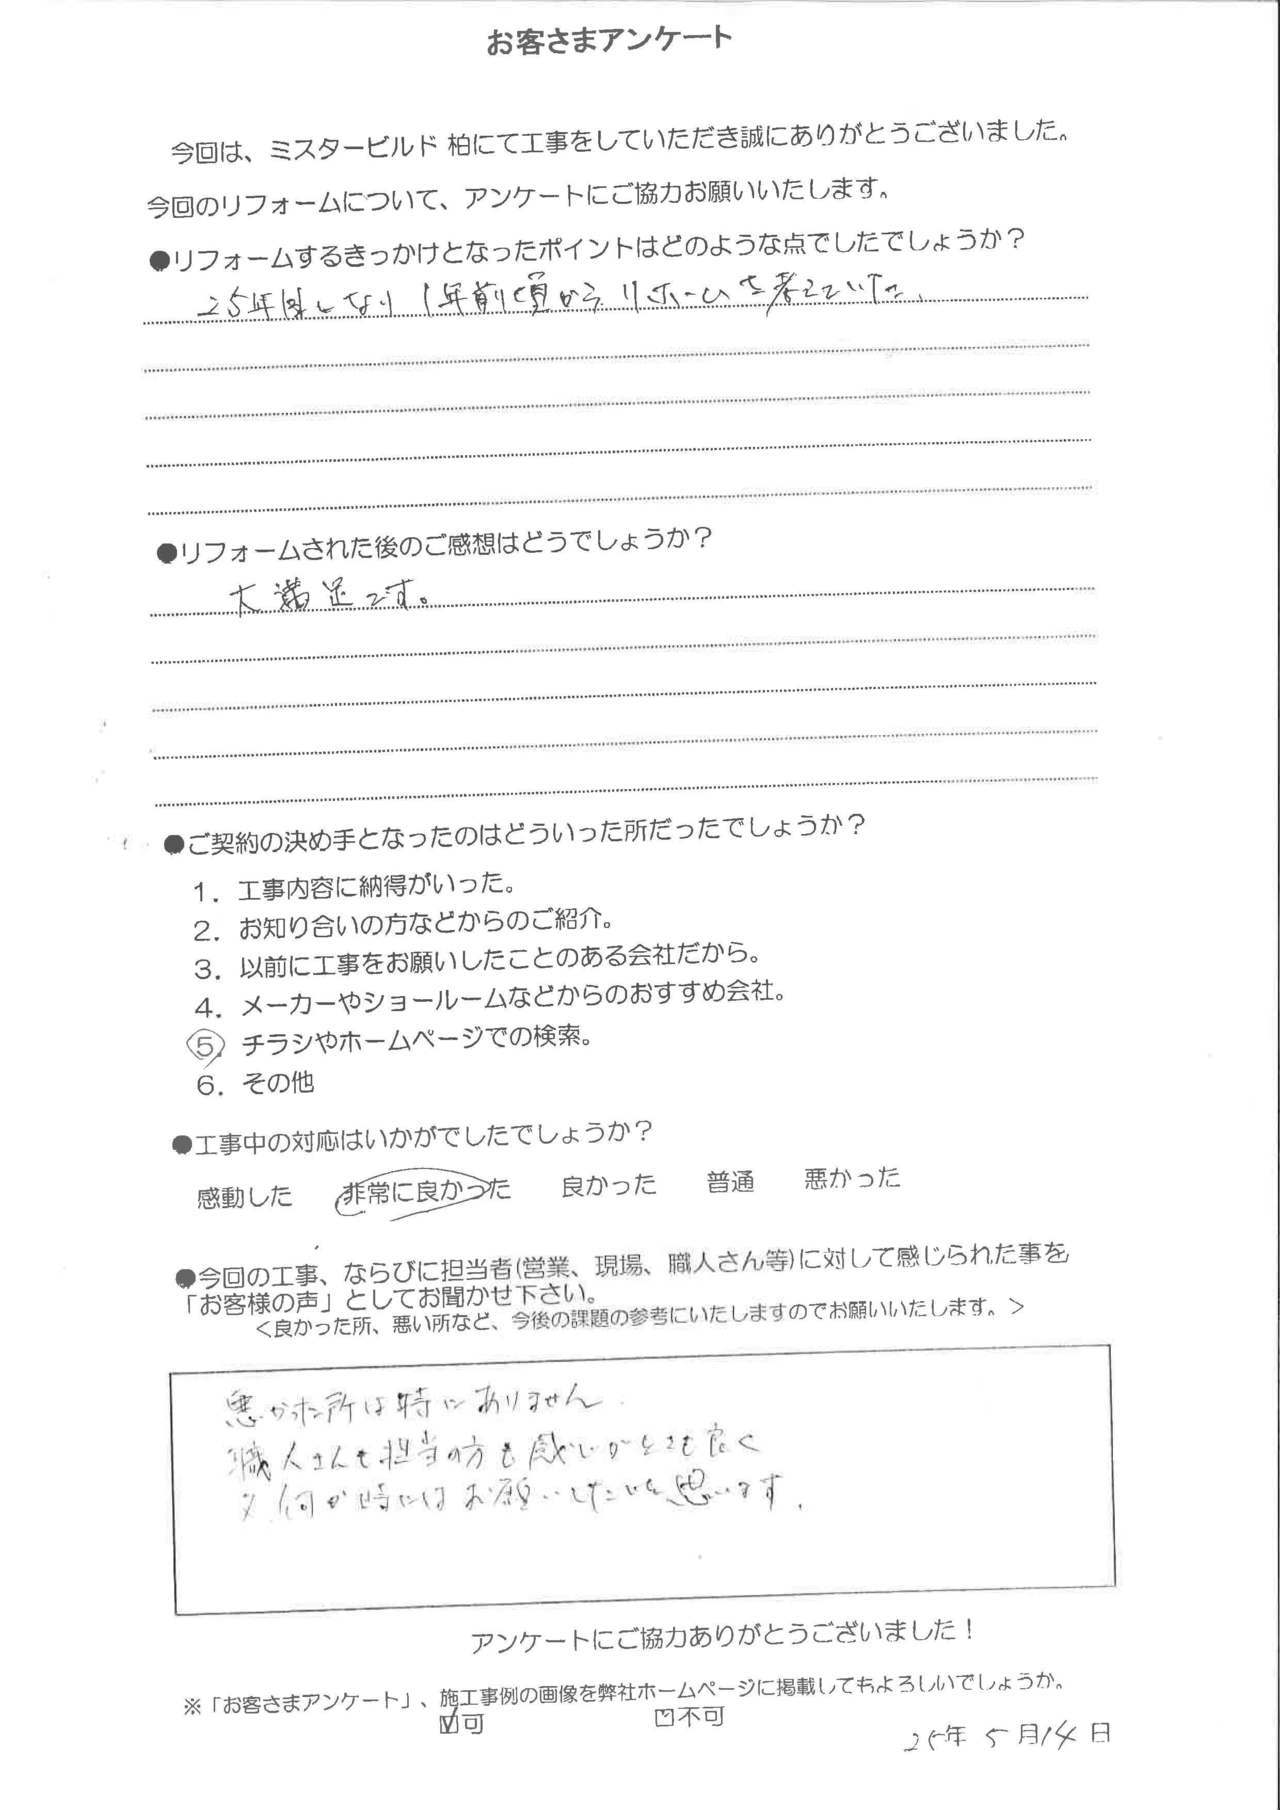 お客さまアンケート
今回は、ミスタービルド 柏にて工事をしていただき誠にありがとうございました。
今回のリフォームについて、アンケートにご協力お願いいたします。
●リフォームするきっかけとなったポイントはどのような点でしたでしょうか？
25年 となり 1年前頃から リホームを考えていた。
●リフォームされた後のご感想はどうでしょうか？
大満足です。
●ご契約の決め手となったのはどういった所だったでしょうか？
1．工事内容に納得がいった。
2．お知り合いの方などからのご紹介。
3．以前に工事をお願いしたことのある会社だから。
4．メーカーやショールームなどからのおすすめ会社。
5．チラシやホームページでの検索。
6．その他
●工事中の対応はいかがでしたでしょうか？
感動した 非常に良かった 良かった 普通 悪かった
●今回の工事、ならびに担当者(営業、現場、職人さん等)に対して感じられた事を
「お客様の声」としてお聞かせ下さい。
＜良かった所、悪い所など、今後の課題の参考にいたしますのでお願いいたします。＞
悪かった所は特にありません
職人さんも担当の方も感じがとても良く
又何か時にはお願いしたいと思います。
アンケートにご協力ありがとうございました！
※「お客さまアンケート」、施工事例の画像を弊社ホームページに掲載してもよろしいでしょうか。
☑可 □不可
25年 5月14日